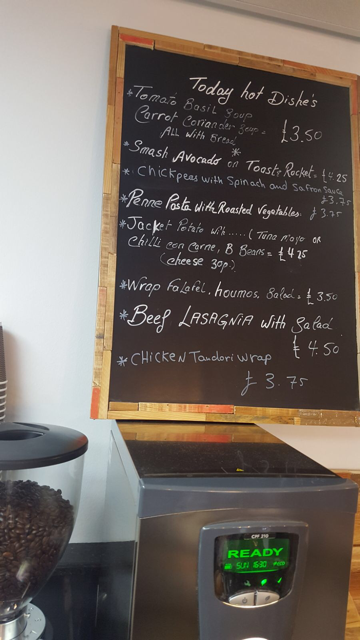 Today hot Dishe's
*Tomato Basil Soup
Carrot Coriander Soup =
ALL With Bread
£3.50
*Smash Avocado on Toast & Rocket = £4.25
*Chickpeas with Spinach and Safron Sauce
£3.75
*Penne Pasta With Roasted Vegetables. £3.75
*Jacket Potato with.....(Tuna mayo or
chilli con carne, B Beans = £4.25
(cheese 30p)
*Wrap Falafel, houmos, Salad = £3.50
*Beef LASAGNIA with Salad
£4.50
*CHICKEN Tandori Wrap
£3.75
CPF 210
READY
SU1 16:30